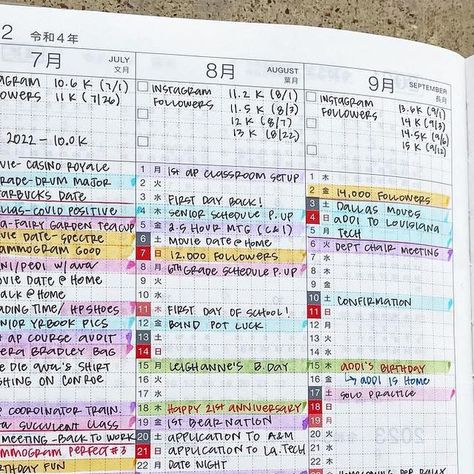 2 令和4年
7月 JULY 文月
INSTAGRAM 10.6 K (7/1)
FOLLOWERS 11 K (7/26)
2022 - 10.0K
MOVIE - CASINO ROYALE
GRADE - DRUM MAJOR
STARBUCKS DATE
DALLAS - COVID POSITIVE
FAIRY GARDEN TEACUP
MOVIE DATE - SPECTRE
MAMMOGRAM GOOD
MANI/PEDI W/ AVA
MOVIE DATE @ HOME
TALK @ HOME
READING TIME / HP SHOES
SENIOR YRBOOK PICS
AP COURSE AUDIT
VERA BRADLEY BAG
TIE DIE AVA'S SHIRT
FISHING ON CONROE
COORDINATOR TRAIN.
SUCCULENT CLASS
MEETING - BACK TO WORK
MAMMOGRAM PERFECT #3
BIRTHDAY FUN
8月 AUGUST 葉月
INSTAGRAM 11.2 K (8/1)
FOLLOWERS 11.5 K (8/3)
12 K (8/7)
13 K (8/22)
1 月 1ST AP CLASSROOM SETUP
2 火
3 FIRST DAY BACK!
4 木 SENIOR SCHEDULE P. UP
5 金 2.5 HOUR MTG (C&I)
6 土 MOVIE DATE @ HOME
7 日 12,000 FOLLOWERS
8 月 6TH GRADE SCHEDULE P. UP
9 火
10 水
11 木 FIRST DAY OF SCHOOL!
12 金 BAND POT LUCK
13 土
14 日
15 月 LEIGHANNE'S B. DAY
16 火
17 水
18 木 HAPPY 21ST ANNIVERSARY
19 金 1ST BEAR NATION
20 土 APPLICATION TO A&M
21 日 APPLICATION TO LA. TECH
22 月 DATE NIGHT
9月 SEPTEMBER 長月
INSTAGRAM 13.6K (9/1)
FOLLOWERS 14 K (9/3)
14.5K (9/6)
15 K (9/12)
1 木
2 金 14,000 FOLLOWERS
3 土 DALLAS MOVES
4 日 ADDI TO LOUISIANA
5 月 TECH
6 火 DEPT CHAIR MEETING
7 水
8 木
9 金
10 土 CONFIRMATION
11 日
12 月
13 火
14 水
15 木 ADDI'S BIRTHDAY
16 金 ↳ ADDI IS HOME
17 土 SOLO PRACTICE
18 日
19 月
20 火
21 水